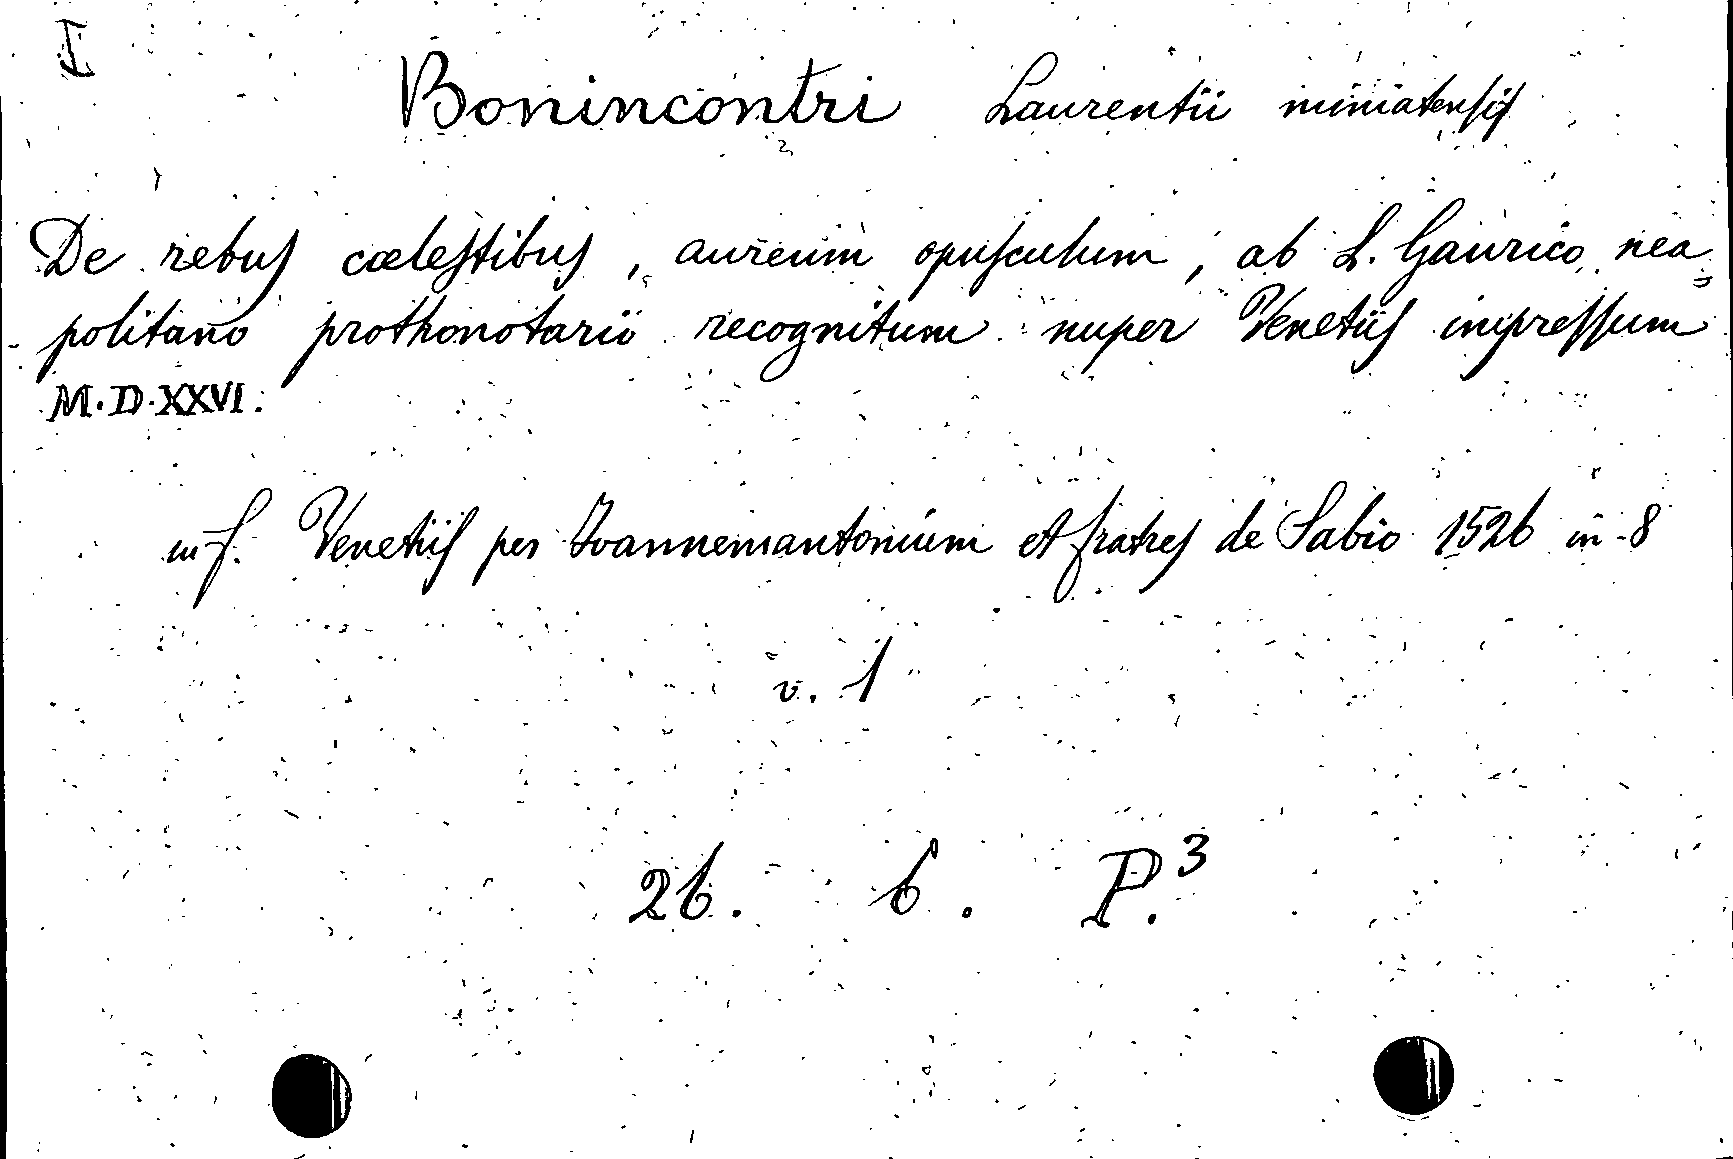 I
Bonincontri Laurentii miniatensis
De rebus cœlestibus, aureum opusculum, ab L. Gaurico nea=
politano prothonotarii recognitum nuper Venetiis impressum
M.D.XXVI.
in f. Venetiis per Ioannemantonium et fratres de Sabio 1526 in-8
v. 1
26. 6. P.3